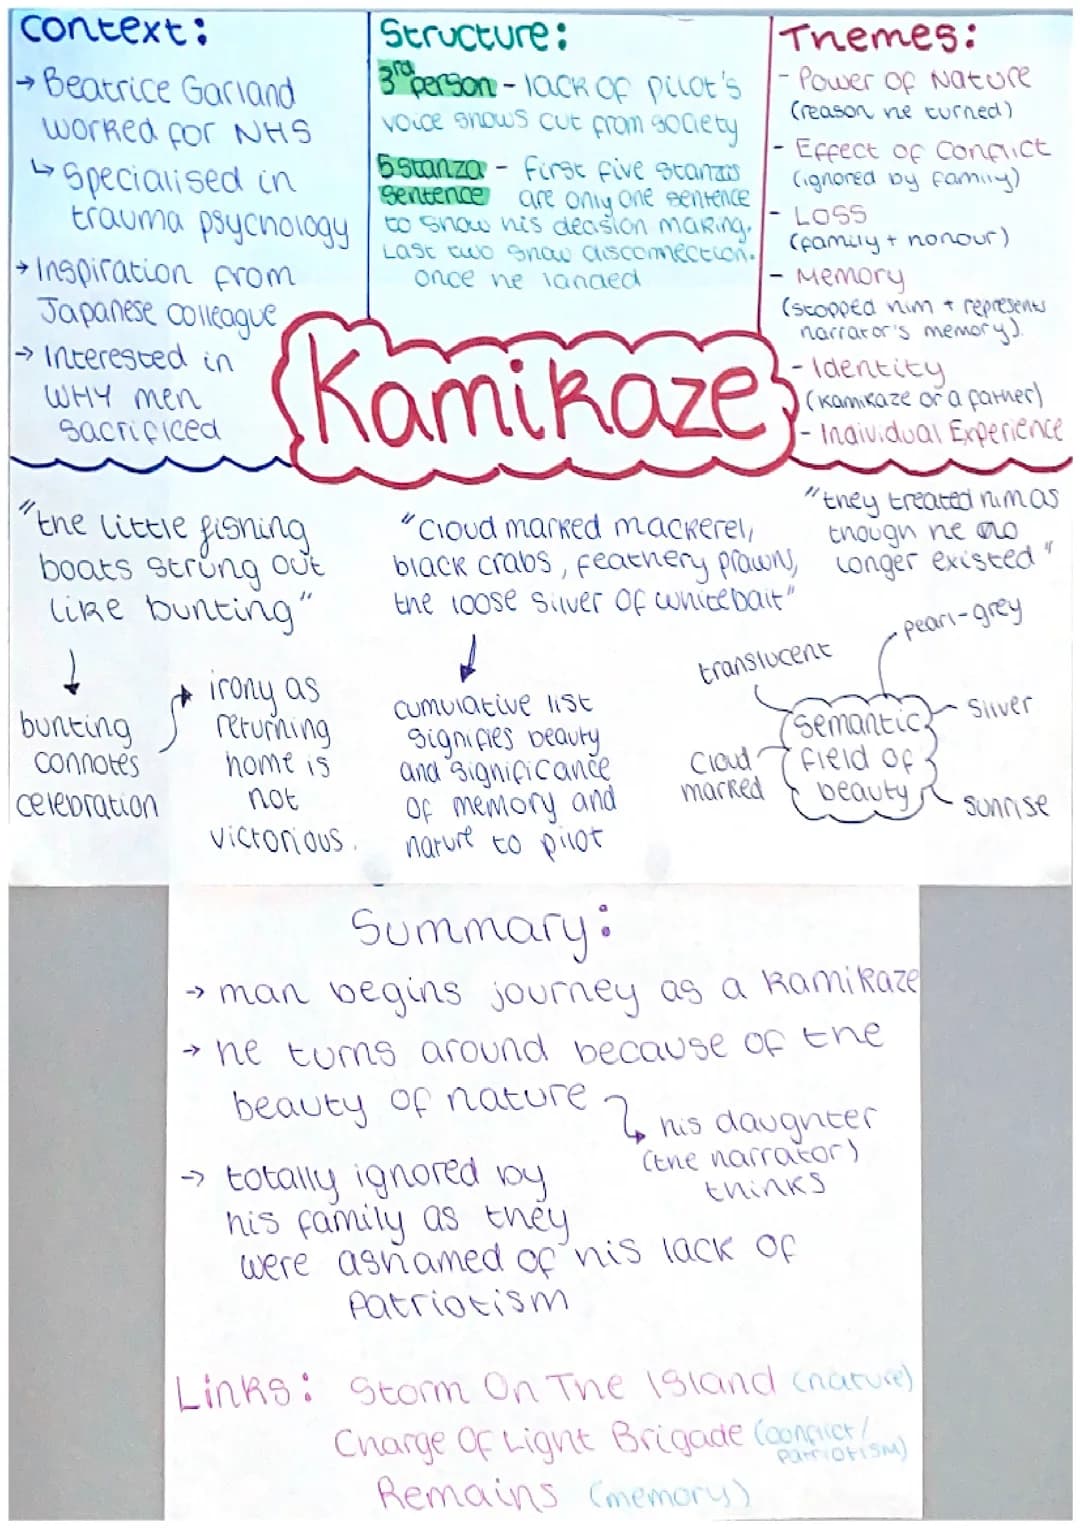 Context:
→ Beatrice Garland
worked for NHS
↳ Specialised in
trauma psychology
→ Inspiration from
Japanese colleague
→ Interested in
WHY men
sacrificed
Structure:
3rd person - lack of pilot's
voice shows cut from society
5 stanza - First five stanzas
sentence are only one sentence
to show his decision making.
Last two show disconnection.
once he landed
Themes:
- Power of Nature
(reason he turned)
- Effect of Conflict
(ignored by family)
- Loss
(family + honour)
- Memory
(stopped him + represents
narrator's memory).
- Identity
(kamikaze or a father)
- Individual Experience
Kamikaze
"the little fishing
boats strung out
like bunting"
↓
bunting
connotes
celebration
irony as
returning
home is
not
victorious.
"cloud marked mackerel,
black crabs, feathery prawns,
the loose silver of whitebait"
↓
cumulative list
signifies beauty
and significance
of memory and
nature to pilot
"they treated him as
though he no
longer existed"
translucent
pearl-grey
Silver
Cloud
marked
Semantic
field of
beauty
sunrise
Summary:
→ man begins journey as a kamikaze
→ he turns around because of the
beauty of nature
his daughter
(the narrator)
thinks
→ totally ignored by
his family as they
were ashamed of his lack of
Patriotism
Links: Storm On The Island (nature)
Charge Of Light Brigade (conflict/
patriotism)
Remains (memory)